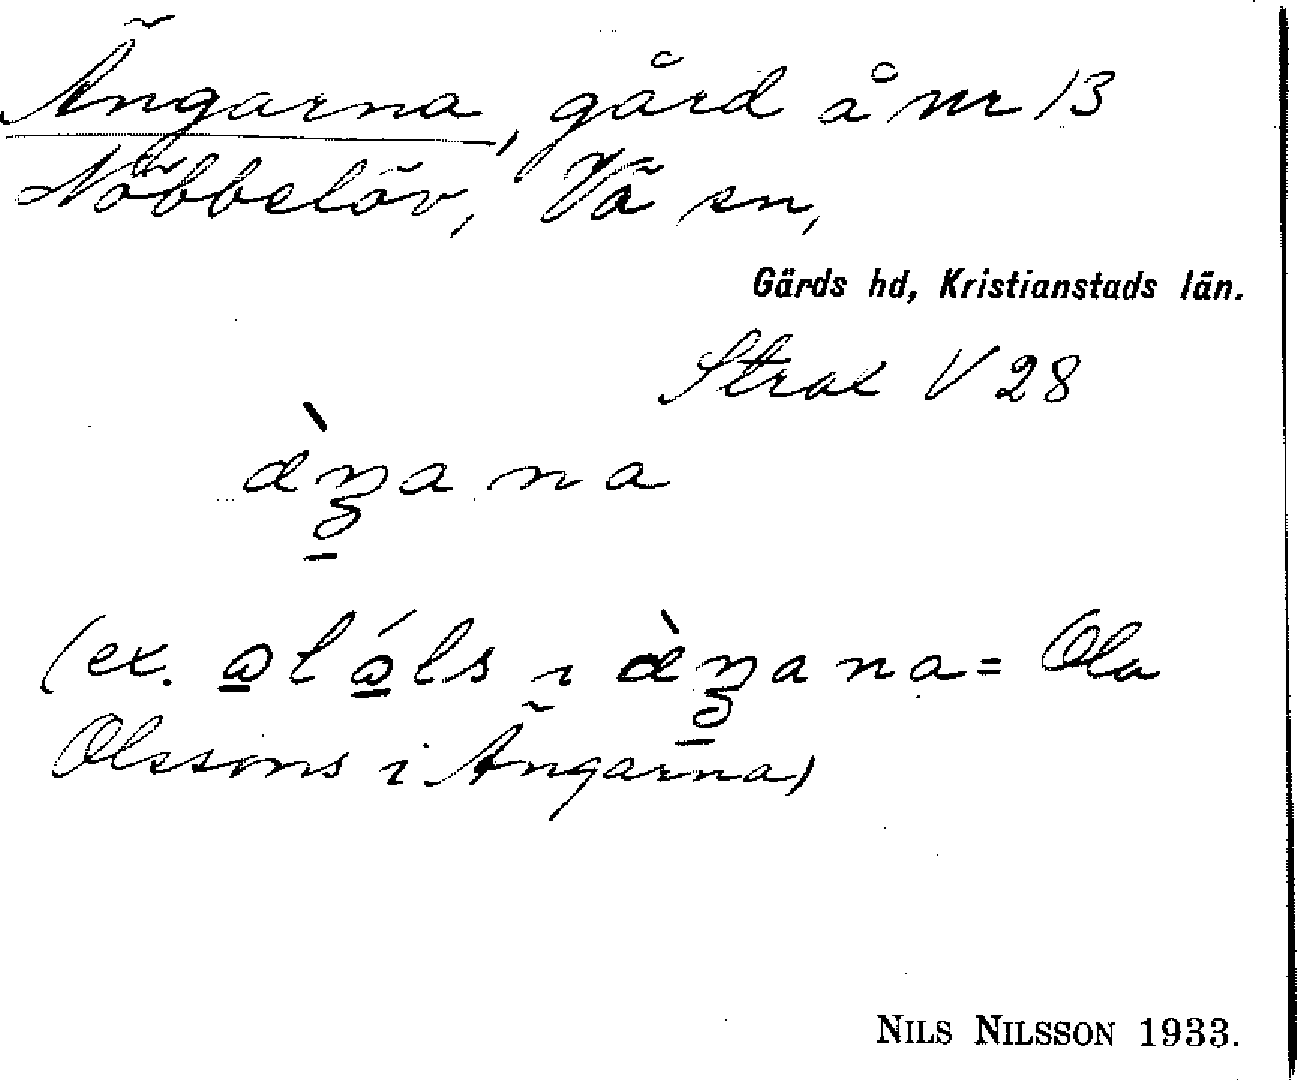 Ängarna, gård å nr 13
Nöbbelöv, Vä sn,
Gärds hd, Kristianstads län.
Strax V 28
àŋana
(ex. a̱l á̱ls ı àŋana = Ola
Olssons i Ängarna)
NILS NILSSON 1933.